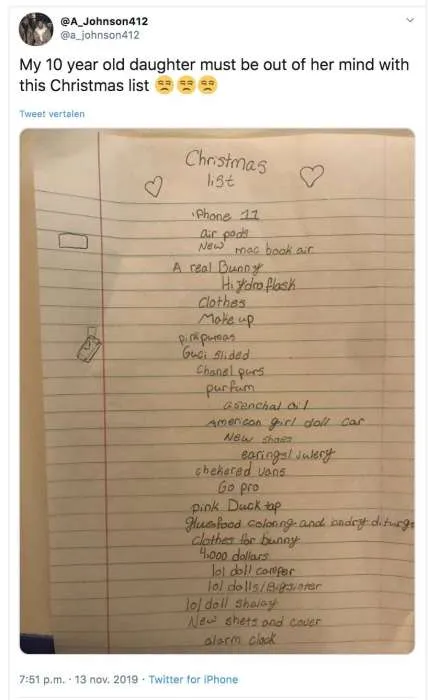 @A_Johnson412
@a_johnson412
My 10 year old daughter must be out of her mind with
this Christmas list
Tweet vertalen
Christmas
list
iPhone 11
air pods
New mac book air
A real Bunny
Hi ydro flask
Clothes
Make up
pink pumas
Guci slided
Chanel purs
purfum
asenchal oil
American girl doll car
New shoes
earings/Julery
chekered vans
Go pro
pink Duck tap
glue food coloring and londry diturge
clothes for bunny
4,000 dollars
lol doll camper
lol dolls/Bigsister
lol doll shalay
New shets and cover
alarm clock
7:51 p.m. · 13 nov. 2019 · Twitter for iPhone